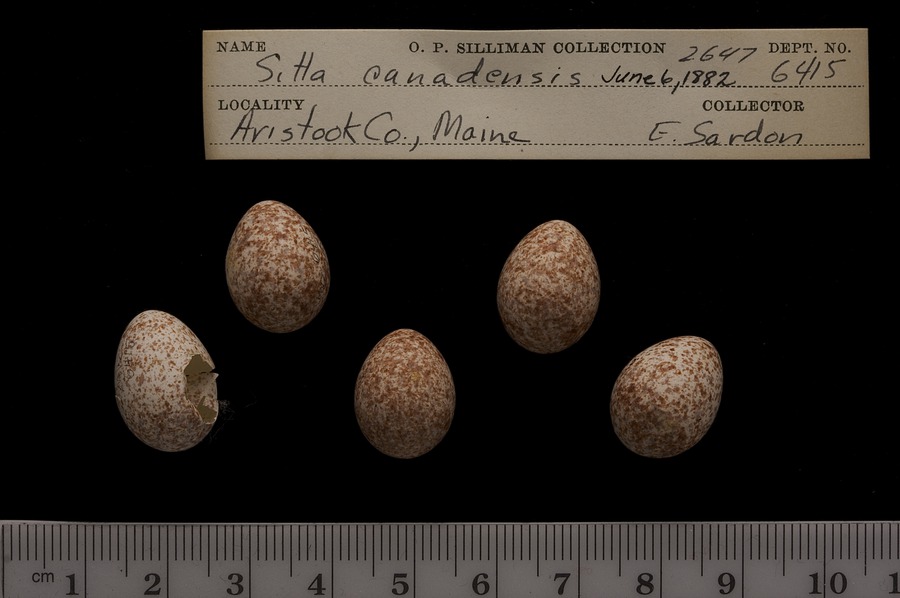 NAME O. P. SILLIMAN COLLECTION 2647 DEPT. NO.
Sitta canadensis June 6, 1882 6415
LOCALITY COLLECTOR
Aristook Co., Maine E. Sardon
cm 1 2 3 4 5 6 7 8 9 10